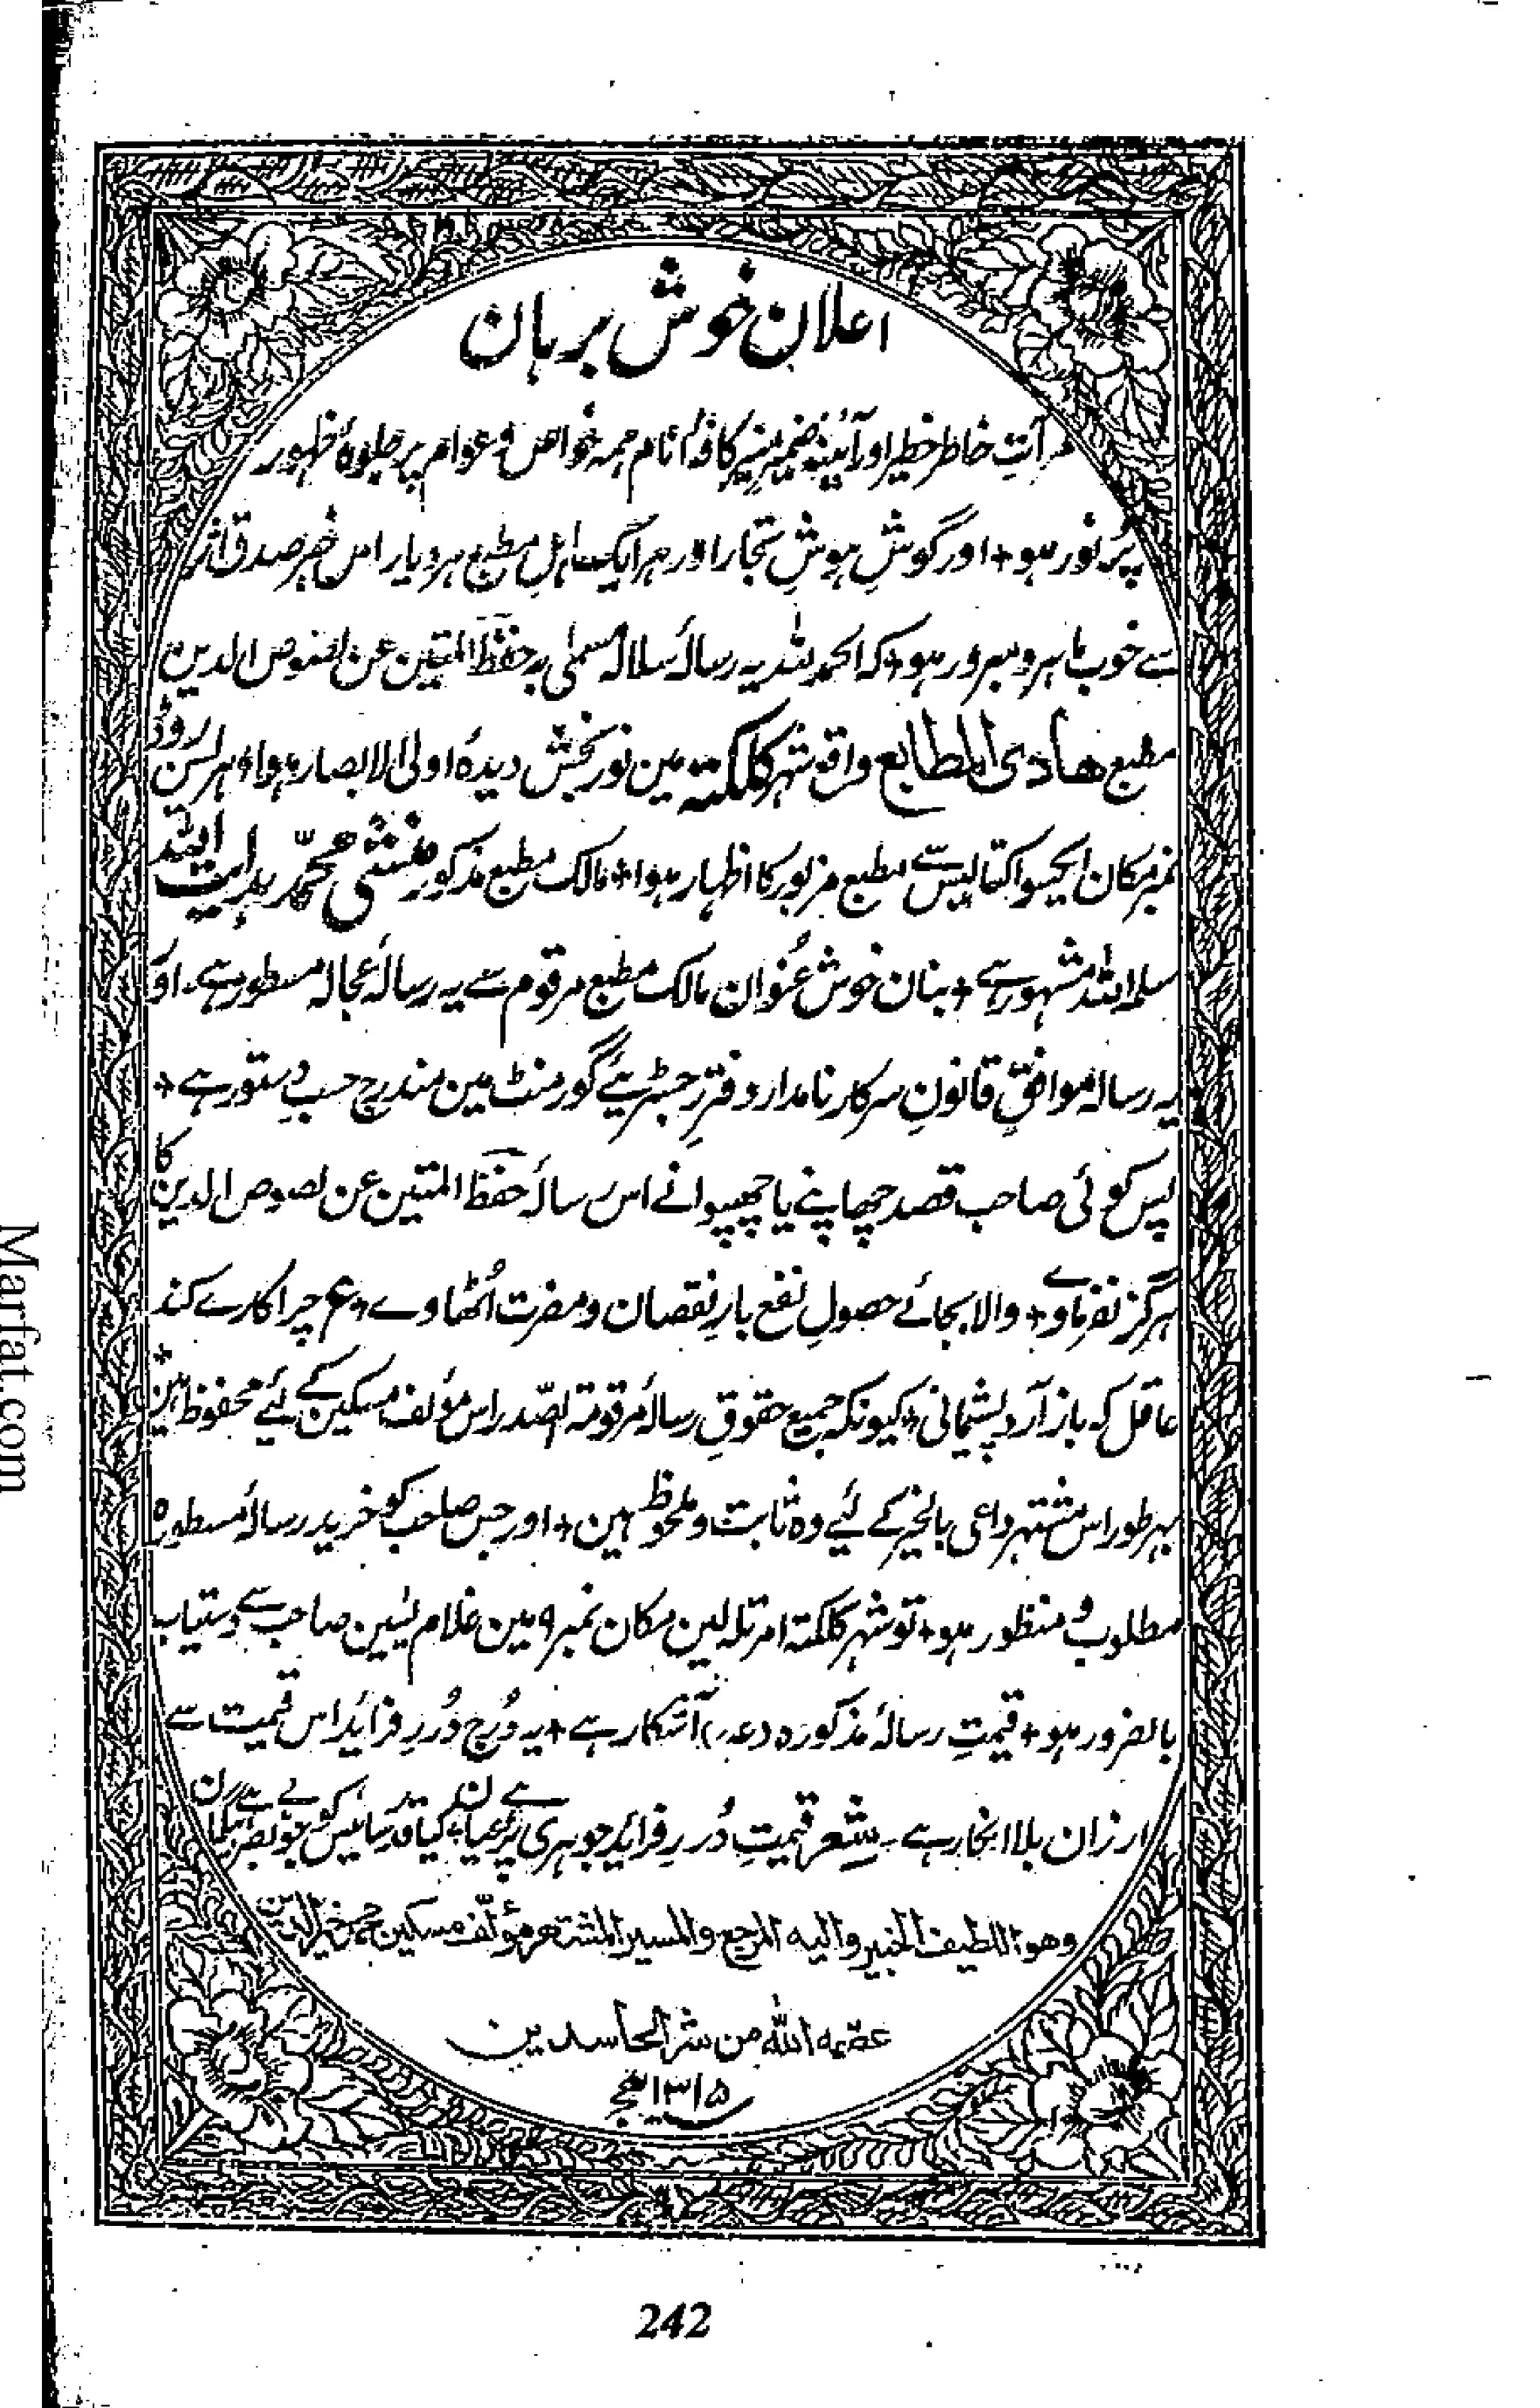 اعلان خوش برہان
مرآتِ خاطر خطیر اور آئینۂ ضمیر منیر کافۂ انام ہمہ خواص و عوام پر جلوۂ ظہور
پُر نور ہو + اور گوشِ ہوشِ تجار اور ہر ایک اہلِ مطبع ہر دیار اس خبر صدق اثر
سے خوب ماہر و سرور ہو + کہ الحمد للہ یہ رسالۂ سلالہ مسمّٰی بہ حفظ المتین عن لصوص الدین
مطبع ھادی المطابع واقع شہر کلکتہ مین نور بخش دیدۂ اولی الابصار ہوا + ہرلسن روڈ
نمبر مکان ایکسو اکتالیس سے مطبع مزبور کا اظہار ہوا + مالک مطبع مذکور منشی محمّد ہدایت اللہ
سلمہ اللہ مشہور ہے + بنان خوش عُنوان مالک مطبع مرقوم سے یہ رسالۂ عجالہ مسطور ہے، اور
یہ رسالہ موافقِ قانونِ سرکار نامدار دفترِ رجسٹریئے گورمنٹ مین مندرج حسبِ دستور ہے +
پس کوئی صاحب قصد چھاپنے یا چھپوانے اس رسالۂ حفظ المتین عن لصوص الدین کا
ہرگز نفرماوے + والا بجائے حصولِ نفع بارِ نقصان و مضرت اُٹھاوے + ع چرا کارے کند
عاقل کہ باز آرد پشیمانی + کیونکہ جمیع حقوقِ رسالۂ مرقومۃ الصّدر اس مؤلف مسکین کے لیئے محفوظ ہین +
بہر طور اس مشتہر داعی بالخیر کے لئے وہ ثابت و ملحوظ ہین + اور جس صاحب کو خرید رسالۂ مسطورہ
مطلوب و منظور ہو + تو شہر کلکتہ امرتلہ لین مکان نمبر ۹ مین غلام یٰسین صاحب سے دستیاب
بالضرور ہو + قیمتِ رسالۂ مذکورہ آشکار ہے + یہ دُرج دُررِ فراید اس قیمت سے
ارزان بلا انکار ہے ۔ شعر قیمتِ دُررِ فراید جوہری پر ہے عیان + کیا قدر سائیس کو جو بصر
وھو اللطیف الخبیر والیہ المرجع والمسیر المشتھر مؤلّف مسکین محمد خیر الدین
عصمہ اللہ من شر الحاسدین
۱۳۱۵ ہجر
242
Marfat.com